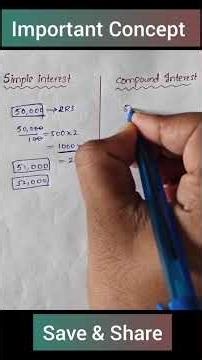 Important Concept
Simple interest
Compound Interest
50,000 → 2RS
50,000/100 = 500 x 2
= 1000 x
= 2
51,000
52,000
Save & Share